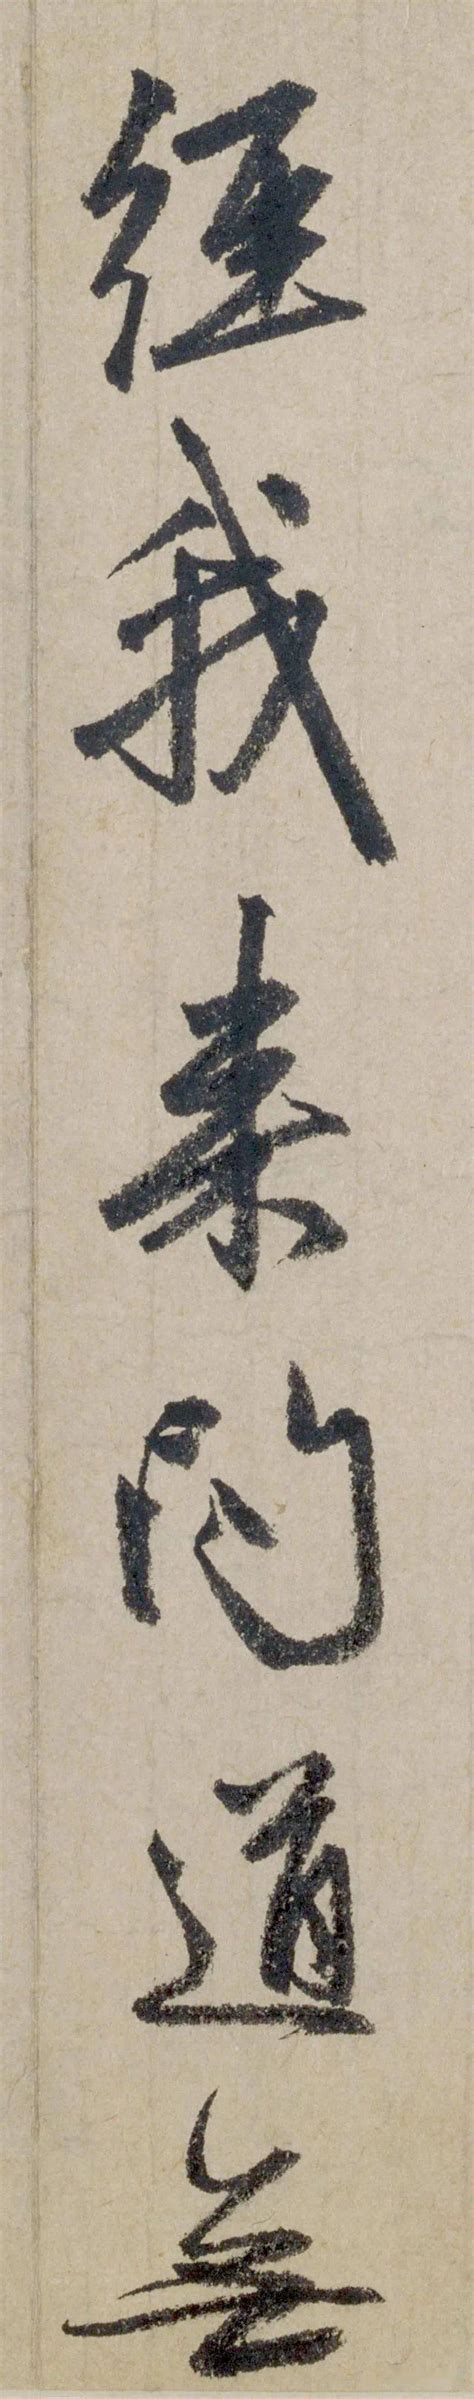 經我来問道無